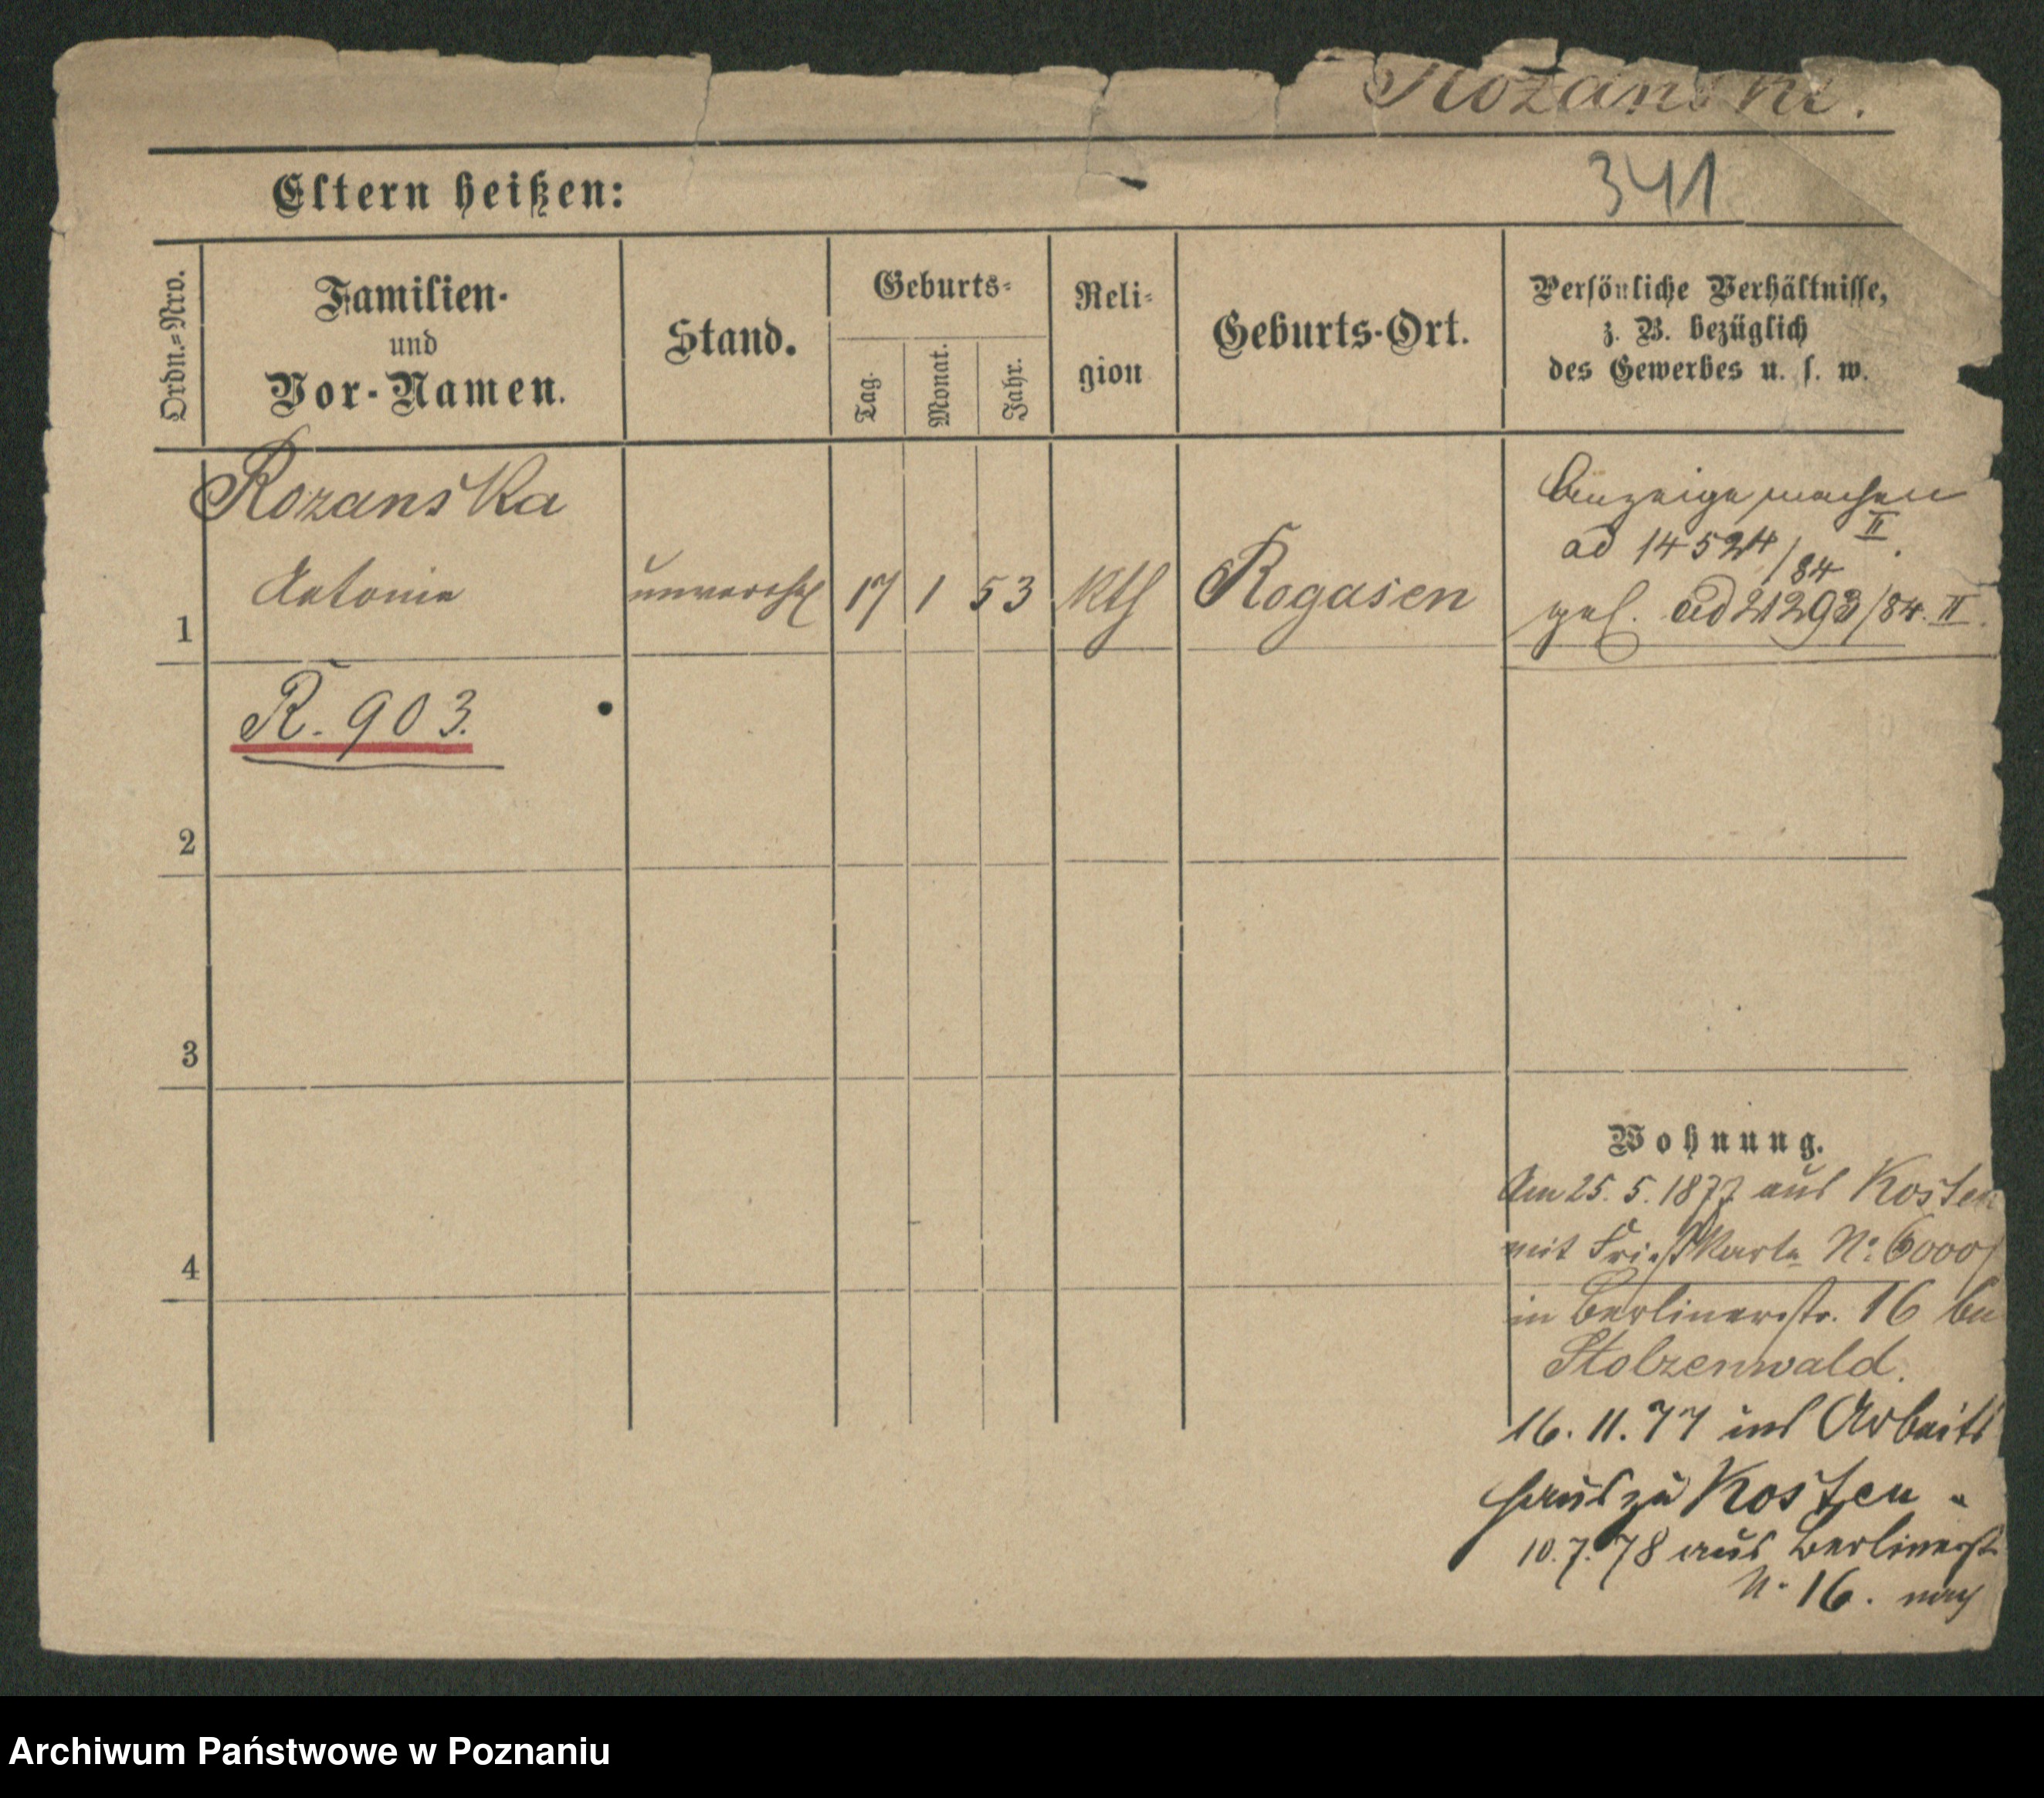 Rozanski.
341
Eltern heißen:
Ordn.=Nro.
Familien-
und
Vor-Namen.
Stand.
Geburts-
Tag.
Monat.
Jahr.
Reli-
gion
Geburts-Ort.
Persönliche Verhältnisse,
z. B. bezüglich
des Gewerbes u. s. w.
Rozanska
Antonie
1
unverehel
17 1 53
kth
Rogasen
Anzeige machen
ad 14524/84 II.
gef. ad 21293/84. II.
R. 903.
2
3
4
Wohnung.
Am 25. 5. 1877 aus Kosten
mit No 6000
in Berlinerstr. 16 bei
Stolzenwald.
16. 11. 77 ins Arbeits
haus zu Kosten.
10. 7. 78 aus Berlinerst
N. 16. nach
Archiwum Państwowe w Poznaniu